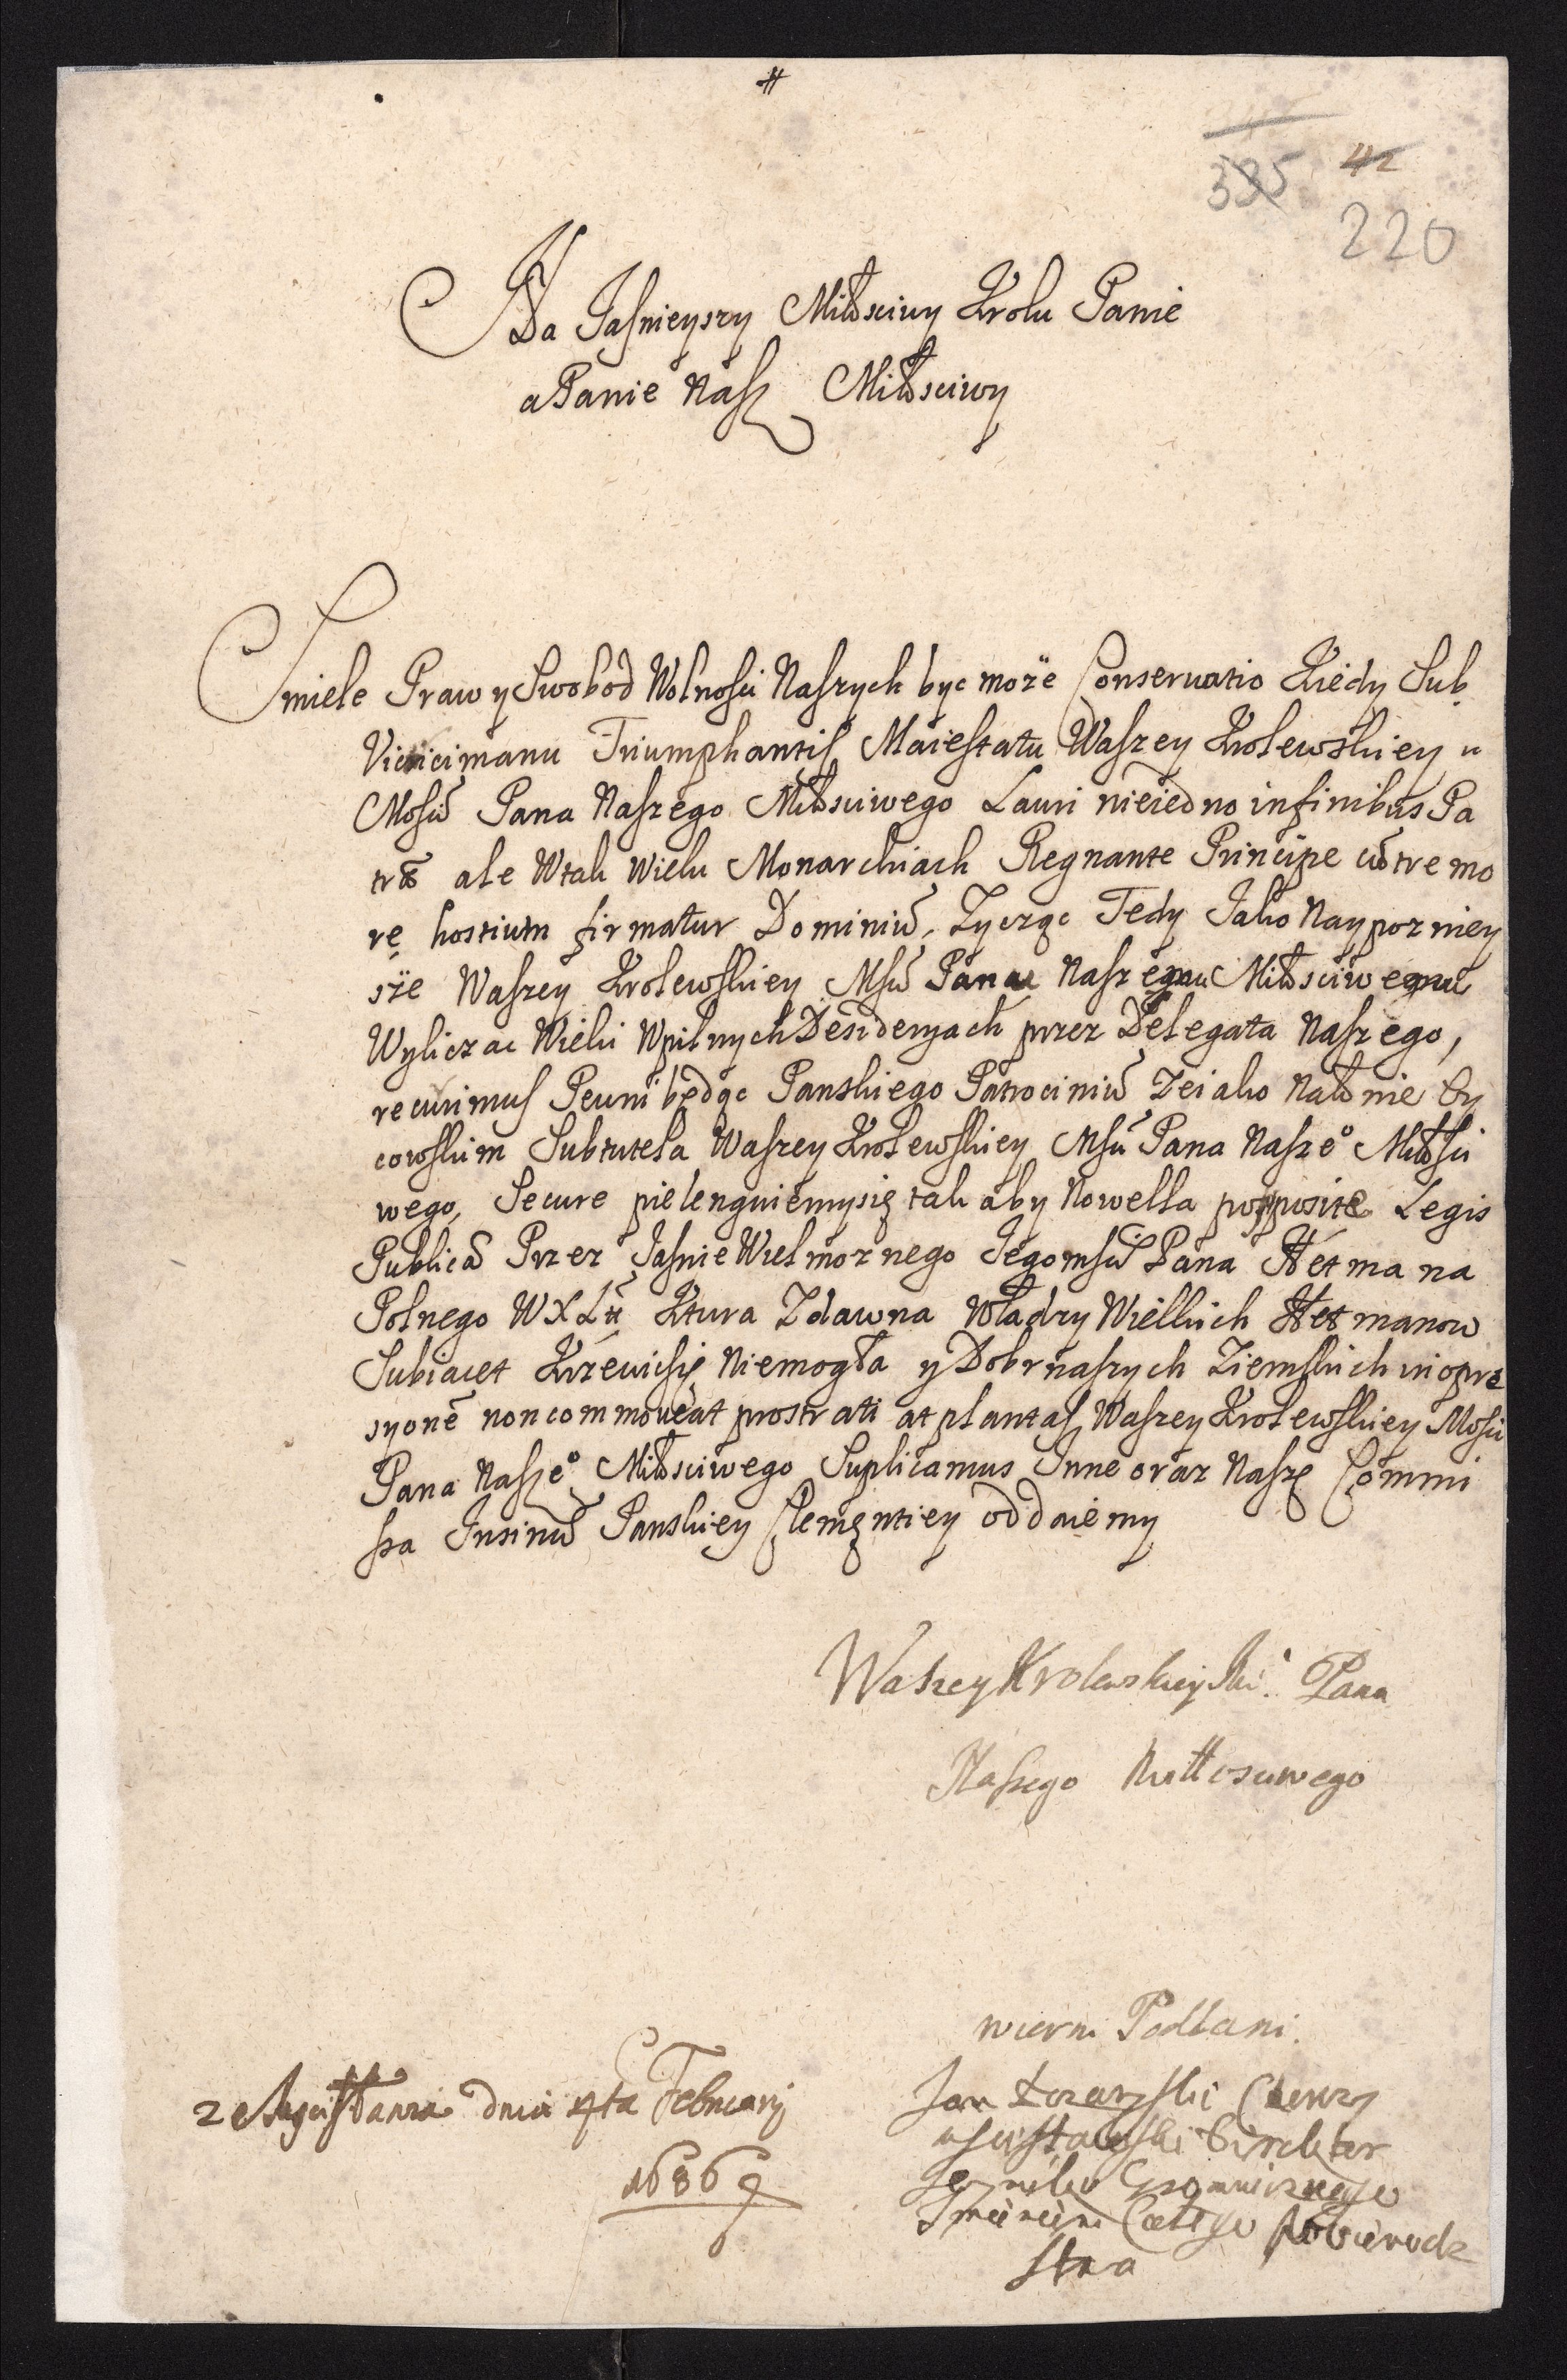 #
42
335
220
Na Jaśnieyszy Miłosciwy Krolu Panie
a Panie Nasz Miłosciwy
Smiele Praw y Swobod Wolnosci Naszych byc moze Conseruatio Kiedy Sub
Victricimanu Triumphantis Maiestatu Waszey Krolewskiey
Mosci Pana Naszego Miłosciwego Lauri nieiedno infinibus Pa
trũ ale Wtak Wielu Monarchiach Regnante Principe
re hostium firmatur Dominiũ, Zycząc Tedy Jako Naypozniey
sze Waszey Krolewskiey Msci Pana Naszego Miłosciwego
Wyliczac Wieki Wpilnych Desideryach przez Delegata Naszego,
recurimus Pewni będąc Panskiego Patrociniũ Zeiako
cowskim Subtutela Waszey Krolewskiey Msci Pana Nasze° Miłosci
wego, Secure pielenguiemysię tak aby Nowella pospposite Legis
Publicã Przez Jasnie Wielmoznego Jegomsci Pana Hetmana
Polnego WXLit Ktura Zdawna Władzy Wielkich Hetmanow
Subiacet Krzewicsię Niemogła y Dobr naszych Ziemskich inopre
syonẽ noncommoueat prostrati at plantas Waszey Krolewskiey Mosci
Pana Nasze° Miłosciwego Suplicamus Inne oraz Nasze Commi
ssa Insinũ Panskiey Clementiey oddaiemy
Waszey Krolewskiey Mci. Pana
Naszego Miłłosciwego
wierni Poddani.
z Msscisławia dnia 4ta Februarij
1686
Jan
Msscisławski Direktor
Seymiku Gromnicznego
Imieniem Całego Woiewodz
stwa